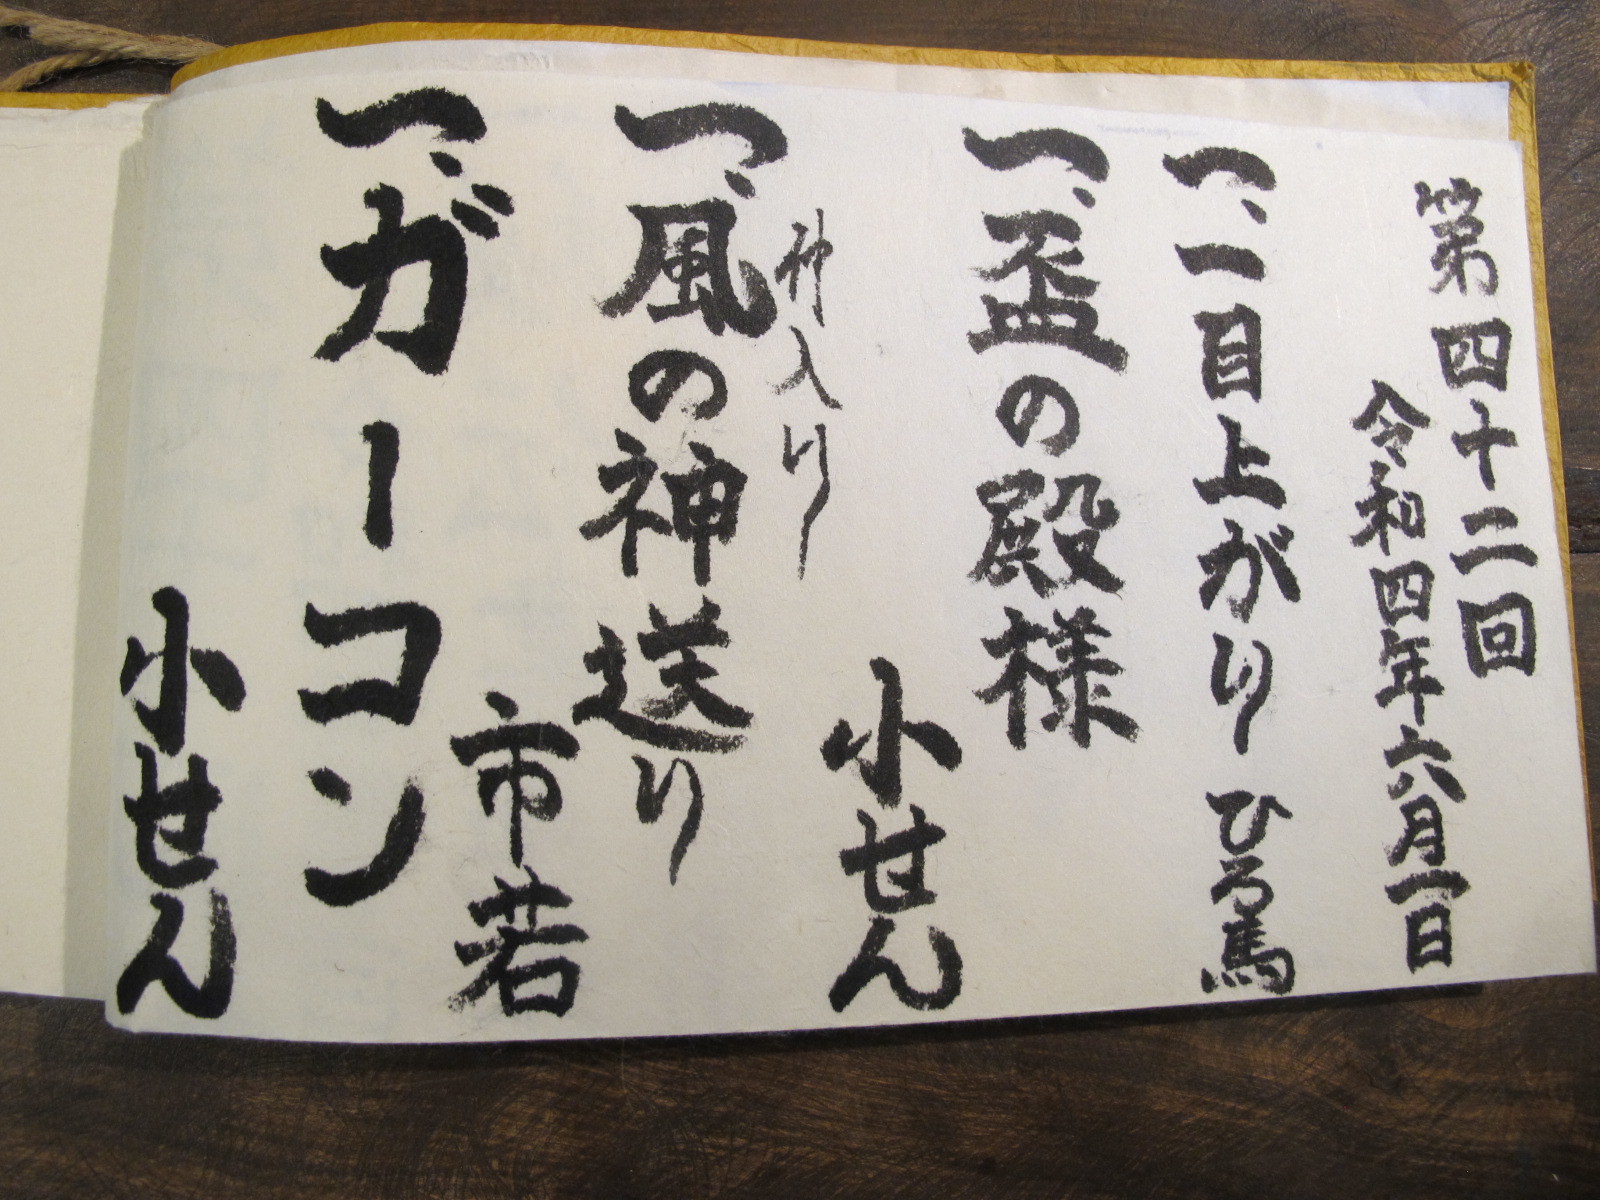 第四十二回
令和四年六月一日
一、一目上がり ひろ馬
一、盃の殿様
小せん
仲入り
一、風の神送り
市若
一、ガーコン
小せん